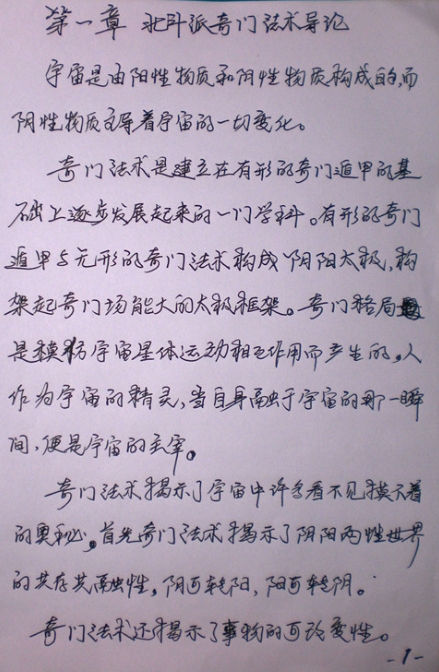 第一章 北斗派奇门法术导论
宇宙是由阳性物质和阴性物质构成的,而
阴性物质主导着宇宙的一切变化。
奇门法术是建立在有形的奇门遁甲的基
础上逐步发展起来的一门学科。有形的奇门
遁甲与无形的奇门法术构成阴阳太极,构
架起奇门场能大的太极框架。奇门格局
是模仿宇宙星体运动相互作用而产生的。人
作为宇宙的精灵,当自身融于宇宙的那一瞬
间,便是宇宙的主宰。
奇门法术揭示了宇宙中许多看不见摸不着
的奥秘。首先奇门法术揭示了阴阳两性世界
的共存共融性,阴可转阳,阳可转阴。
奇门法术还揭示了事物的可玲变性。
-1-